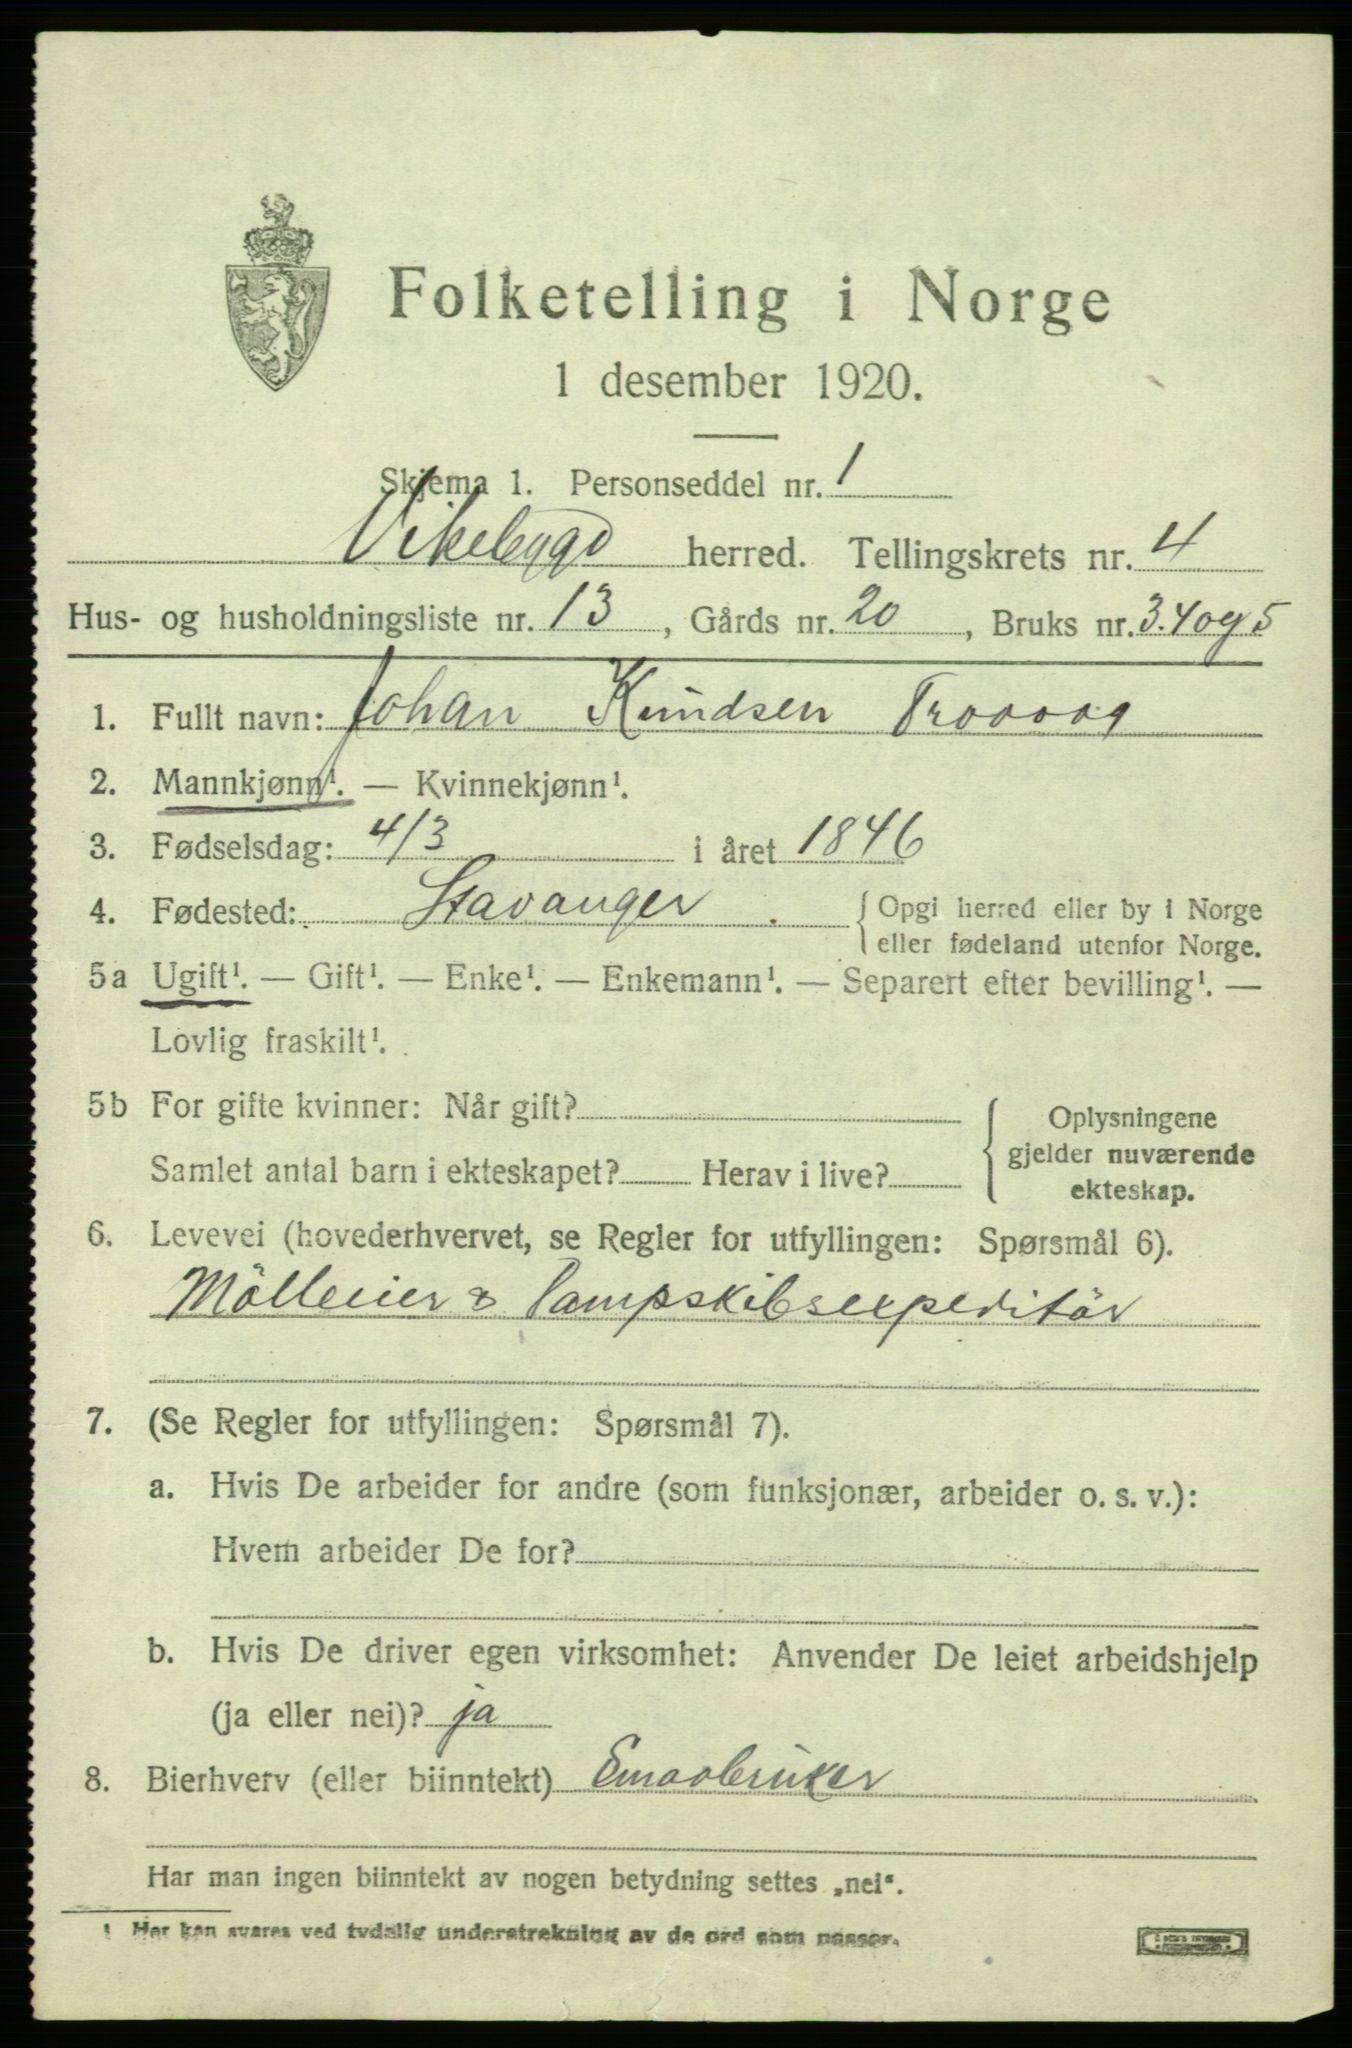 Folketelling i Norge
1 desember 1920.
Skjema 1. Personseddel nr. 1
Vikebygd herred. Tellingskrets nr. 4
Hus- og husholdningsliste nr. 13, Gårds nr. 20, Bruks nr. 3.4og5
1. Fullt navn: Johan Knudsen
2. Mannkjønn¹. — Kvinnekjønn¹.
3. Fødselsdag: 4/3 i året 1846
4. Fødested: Stavanger. Opgi herred eller by i Norge
eller fødeland utenfor Norge.
5a Ugift¹. — Gift¹. — Enke¹. — Enkemann¹. — Separert efter bevilling¹. —
Lovlig fraskilt¹.
5b For gifte kvinner: Når gift?
Samlet antal barn i ekteskapet? Herav i live?
Oplysningene
gjelder nuværende
ekteskap.
6. Levevei (hovederhvervet, se Regler for utfyllingen: Spørsmål 6).
Mölleeier & Dampskibsexpeditör
7. (Se Regler for utfyllingen: Spørsmål 7).
a. Hvis De arbeider for andre (som funksjonær, arbeider o. s. v.):
Hvem arbeider De for?
b. Hvis De driver egen virksomhet: Anvender De leiet arbeidshjelp
(ja eller nei)? ja
8. Bierhverv (eller biinntekt) Smaabruker
Har man ingen biinntekt av nogen betydning settes „nei“.
1 Her kan svares ved tydelig understrekning av de ord som passer.